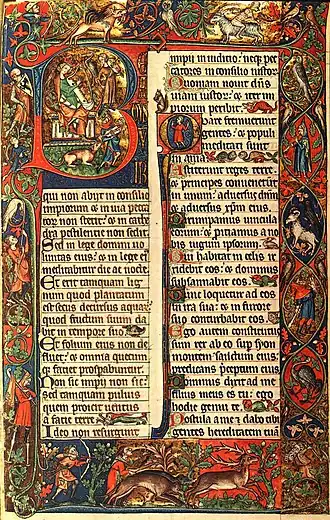 B
qui non abijt in consilio
impiorum & in uia pecca
torum non stetit: & in cathe
dra pestilentie non sedit
Sed in lege domini uo
luntas eius: & in lege ei
meditabitur die ac nocte.
Et erit tamquam lig
num quod plantatum
est secus decursus aquar
quod fructum suum da
bit in tempore suo
Et folium eius non de
fluet: & omnia quecum
& faciet prosperabuntur.
Non sic impij non sic:
sed tamquam puluis
quem proicit uentus
a facie terre
Ideo non resurgunt
impij in iudicio: neq; pec
catores in consilio iustor
Quoniam nouit dns
uiam iustor: & iter im
piorum peribit.
Quare fremuerunt
gentes: & populi
meditati sunt
inania.
Astiterunt reges terre:
& principes conuenerunt
in unum: aduersus dnm
& aduersus xpm eius.
Dirumpamus uincula
eorum: & proiciamus a no
bis iugum ipsorum.
Qui habitat in celis ir
ridebit eos: & dominus
subsannabit eos.
Tunc loquetur ad eos
in ira sua: & in furore
suo conturbabit eos.
Ego autem constitutus
sum rex ab eo sup syon
montem sanctum eius:
predicans preceptum eius
Dominus dixit ad me
filius meus es tu: ego
hodie genui te.
Postula a me & dabo tibi
gentes hereditatem tuam